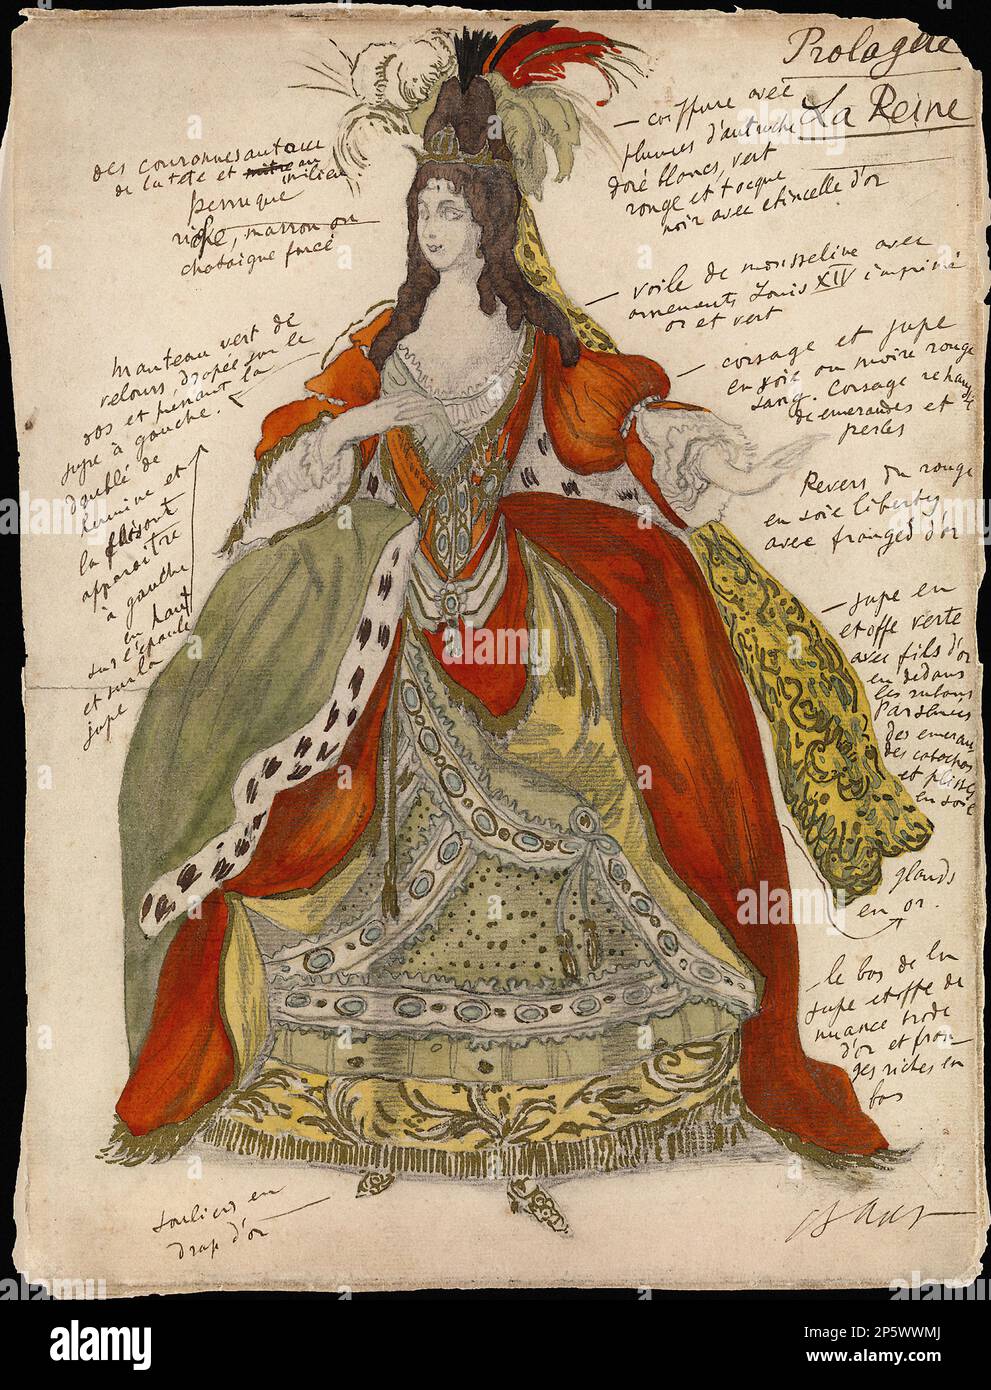 Prologue
La Reine
— coiffure avec
plumes d'autruche
doré blancs, vert
rouge et tocque
noir avec etincelle d'or
des couronnes autour
de la tete et au
milieu
perruque
riche, marron ou
chataigne foncé
— voile de mousseline avec
ornements Louis XIV imprimé
or et vert
— corsage et jupe
en soie ou moire rouge
sang. Corsage rehaussé
d'emeraudes et
perles
manteau vert de
velours drapée sur le
dos et prenant la
jupe à gauche.
doublé de
hermine et
la faisant
apparaitre
à gauche
en haut
sur l'épaule
et sur la
jupe
Revers du rouge
en soie liberty
avec franges d'or
— jupe en
etoffe verte
avec fils d'or
en dedans
les rubans
Parsemés
des emerau
des cabochons
et plissé
en soie
glands
en or.
— le bas de la
jupe etoffe de
nuance brode
d'or et fran
ges riches en
bas
souliers en
drap d'or
Bakst
alamy
a
Image ID: 2P5WWMJ
www.alamy.com